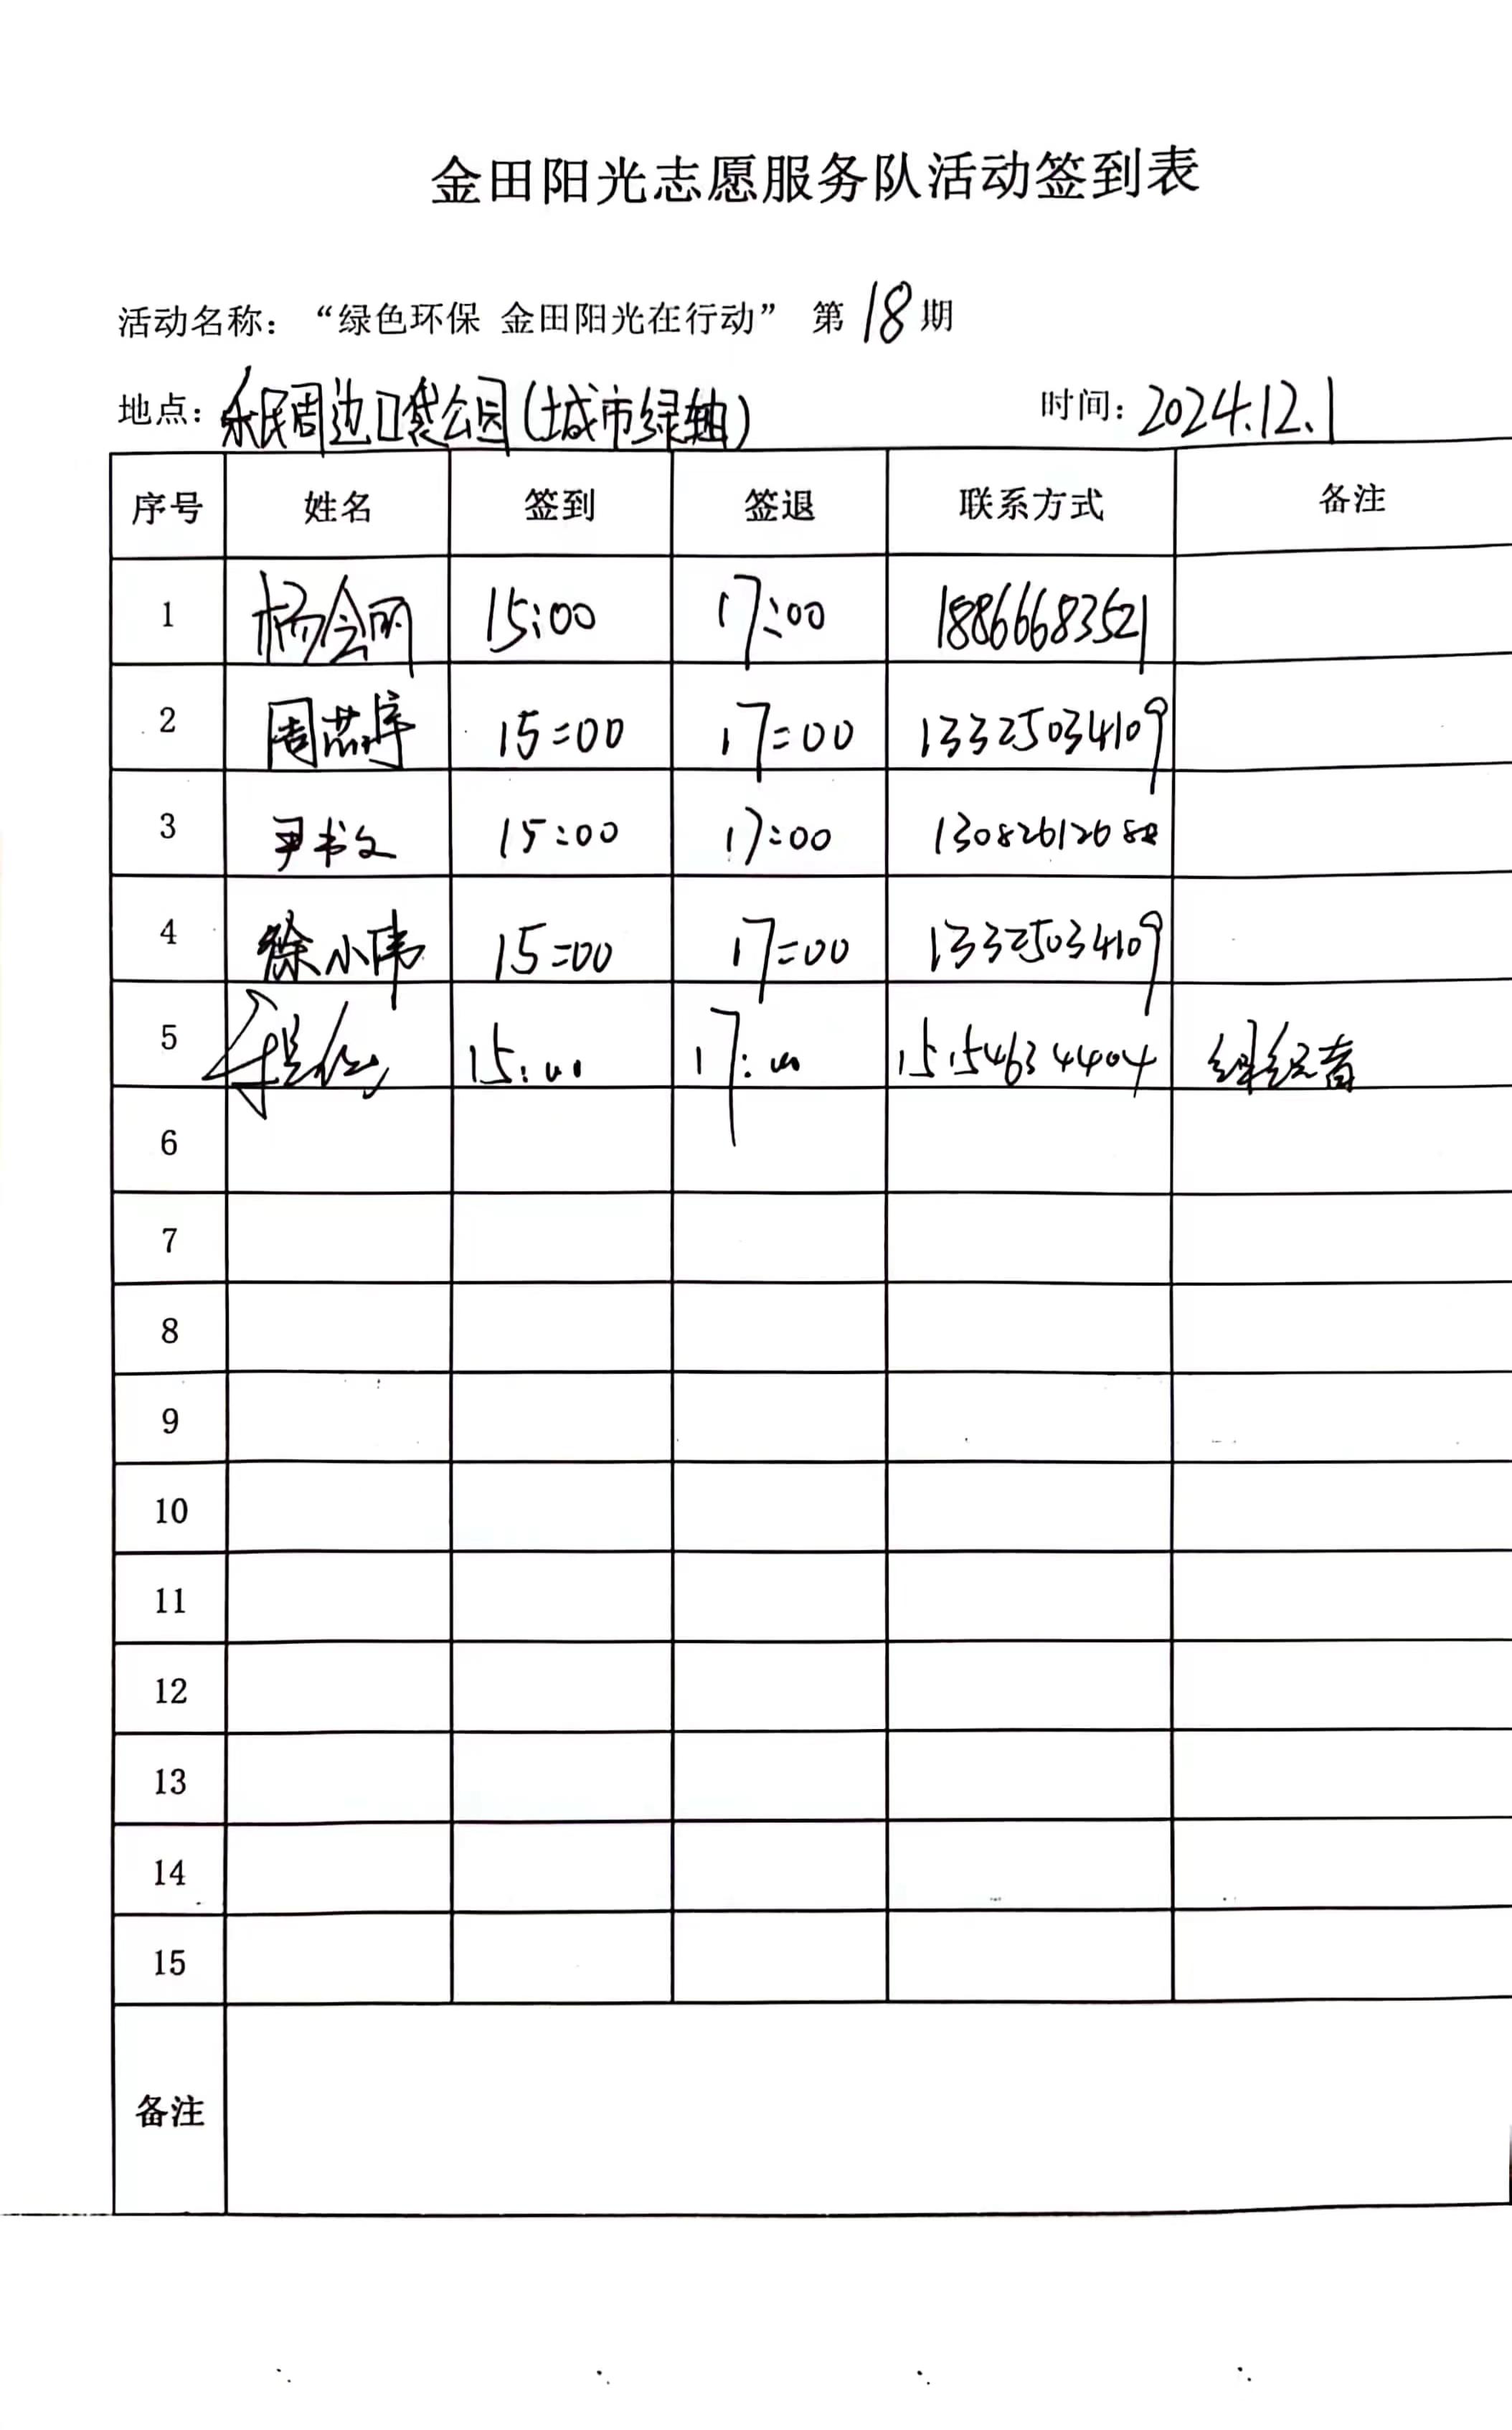 金田阳光志愿服务队活动签到表
活动名称：“绿色环保 金田阳光在行动” 第 18 期
地点：乐民周边口袋公园(城市绿轴) 时间：2024.12.1
序号 姓名 签到 签退 联系方式 备注
1 杨会丽 15:00 17:00 18866683521
2 周芯宇 15:00 17:00 13325034109
3 尹书文 15:00 17:00
4 徐小伟 15:00 17:00 13325034109
5 15:00 17:00 15154634404 组织者
6
7
8
9
10
11
12
13
14
15
备注